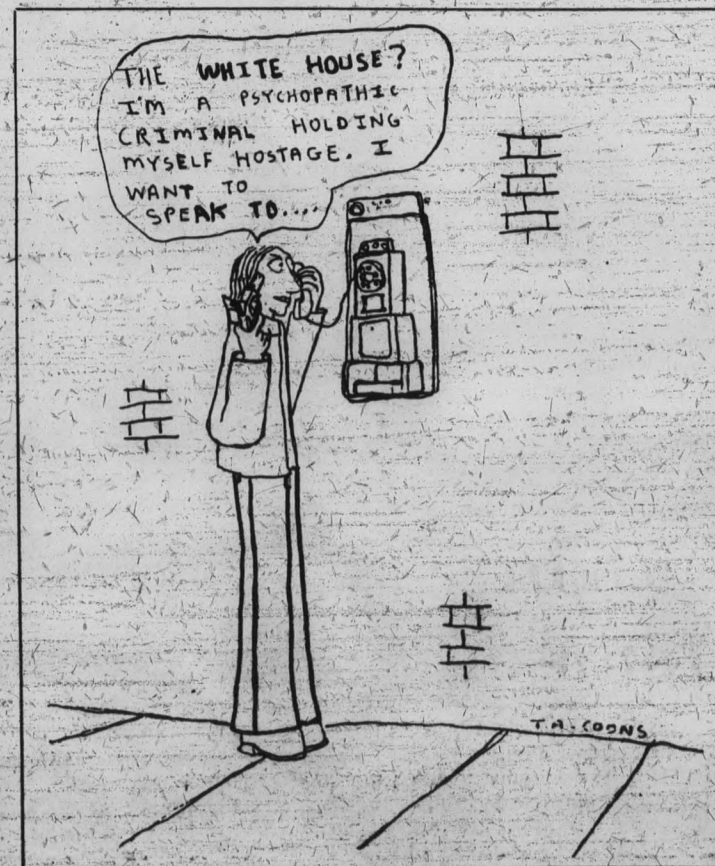 THE WHITE HOUSE?
I'M A PSYCHOPATHIC
CRIMINAL HOLDING
MYSELF HOSTAGE. I
WANT TO
SPEAK TO....
T.A. COONS